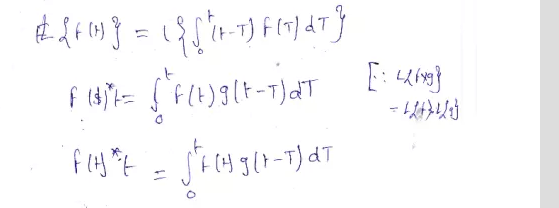 L{f(t)} = L{∫₀ᵗ(t-T) f(T) dT}
f(t)*t = ∫₀ᵗ f(t) g(t-T) dT [∵ L{f*g}
= L{f}L{g}
f(t)*t = ∫₀ᵗ f(t) g(t-T) dT